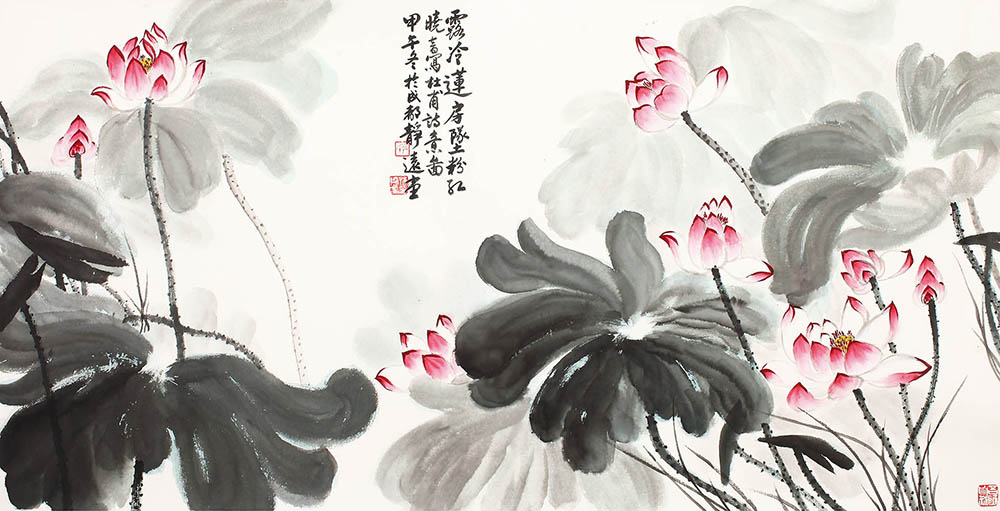 露冷蓮房墜粉紅
曉寫杜甫詩意圖
甲午冬於成都靜遠堂